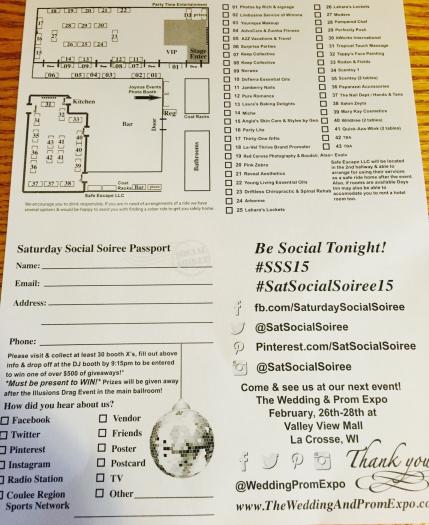 Party Time Entertainment
DJ prizes
28 29 30
VIP
Stage
Enter
26 25 24
06 05 04 03 02 01
Kitchen
Joynus Events
Photo Booth
Reg
Coat Racks
Bar
Door
Bathrooms
37 37 38
Coat
Racks Bar
Safe Escape LLC
We encourage you to drink responsible. If you are in need of arrangements of a ride we have
several options & would be happy to assist you with finding a sober ride to get you safely home.
01 Photos by Rich & signage
02 Limbusine Service of Winona
03 Younique Makeup
04 AdvoCare & Zumba Fitness
05 A2Z Vacations & Travel
06 Surprise Parties
07 Keep Collective
08 Keep Collective
09 Norwex
10 DoTerra Essential Oils
11 Jamberry Nails
12 Pure Romance
13 Laura's Baking Delights
14 Miche
15 Angie's Skin Care & Styles by Geo
16 Party Lite
17 Thirty-One Gifts
18 Le-Vel Thrive Brand Promoter
19 Red Carnna Photography & Boudoir, Also- Evolv
20 Pink Zebra
21 Reveal Aesthetics
22 Young Living Essential Oils
23 Driftless Chiropractic & Spinal Rehab
24 Arbonne
25 Lehara's Lockets
26 Lehara's Lockets
27 Modere
28 Pampered Chef
29 Perfectly Posh
30 Initials International
31 Tropical Touch Massage
32 Tappy's Face Painting
33 Rodan & Fields
34 Scentsy 1
35 Scentsy (2 tables)
36 Paparazzi Accessories
37 The Nail Dept : Hands & Toes
38 Salon Zeyta
39 Mary Kay Cosmetics
40 Wildtree (2 tables)
41 Quick-Azz-Wixk (2 tables)
42 TBA
43 TBA
Safe Escape LLC will be located
in the 2nd hallway & able to
arrange for using their services
as a safe ride home after the event.
Also, if rooms are available Days
Inn may also be able to
accomodate you to a rental hotel
room too.
Saturday Social Soiree Passport
Name:
Email:
Address:
Phone:
Please visit & collect at least 30 booth X's, fill out above
info & drop off at the DJ booth by 9:15pm to be entered
to win one of over $500 of giveaways!*
*Must be present to WIN!* Prizes will be given away
after the Illusions Drag Event in the main ballroom!
How did you hear about us?
Facebook
Twitter
Pinterest
Instagram
Radio Station
Coulee Region
Sports Network
Vendor
Friends
Poster
Postcard
TV
Other
Be Social Tonight!
#SSS15
#SatSocialSoiree15
fb.com/SaturdaySocialSoiree
@SatSocialSoiree
Pinterest.com/SatSocialSoiree
@SatSocialSoiree
Come & see us at our next event!
The Wedding & Prom Expo
February, 26th-28th at
Valley View Mall
La Crosse, WI
Thank you
@WeddingPromExpo
www.TheWeddingAndPromExpo.c